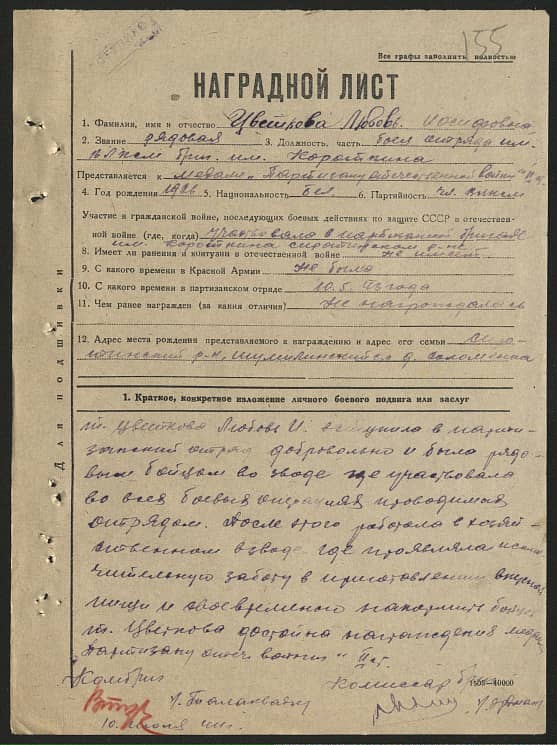 155
Все графы заполнить полностью
НАГРАДНОЙ ЛИСТ
1. Фамилия, имя и отчество Цветкова Любовь. Иосифовна
2. Звание рядовая 3. Должность, часть боец отряда им.
влксм бриг. им. Короткина
Представляется к медали „Партизану отечественной войны" II ст.
4. Год рождения 1926 5. Национальность бел 6. Партийность чл. влксм
Участие в гражданской войне, последующих боевых действиях по защите СССР в отечествен-
ной войне (где, когда) участвовала в партизанской бригаде
им. Короткина сиротинском р-не
8. Имеет ли ранения и контузии в отечественной войне не имеет
9. С какого времени в Красной Армии не была
10. С какого времени в партизанском отряде 10.5. 43 года
11. Чем ранее награжден (за какия отличия) Не награждалась
12. Адрес места рождения представляемого к награждению и адрес его семьи
р-н, шумилинский с/с д.
Для подшивки
1. Краткое, конкретное изложение личного боевого подвига или заслуг
т. Цветкова Любовь И. вступила в парти-
занский отряд добровольно и была рядо-
вым бойцом во взводе где участвовала
во всех боевых операциях проводимых
отрядом. После этого работала в хозяй-
ственном взводе, где проявляла исклю-
чительную заботу в приготовлении вкусной
пищи и своевременно накормить бойцов
т. Цветкова достойна награждения медали
Партизану отеч войны" II ст.
Комбриг Комиссар бриг
1505—40000
10 июля 44г.